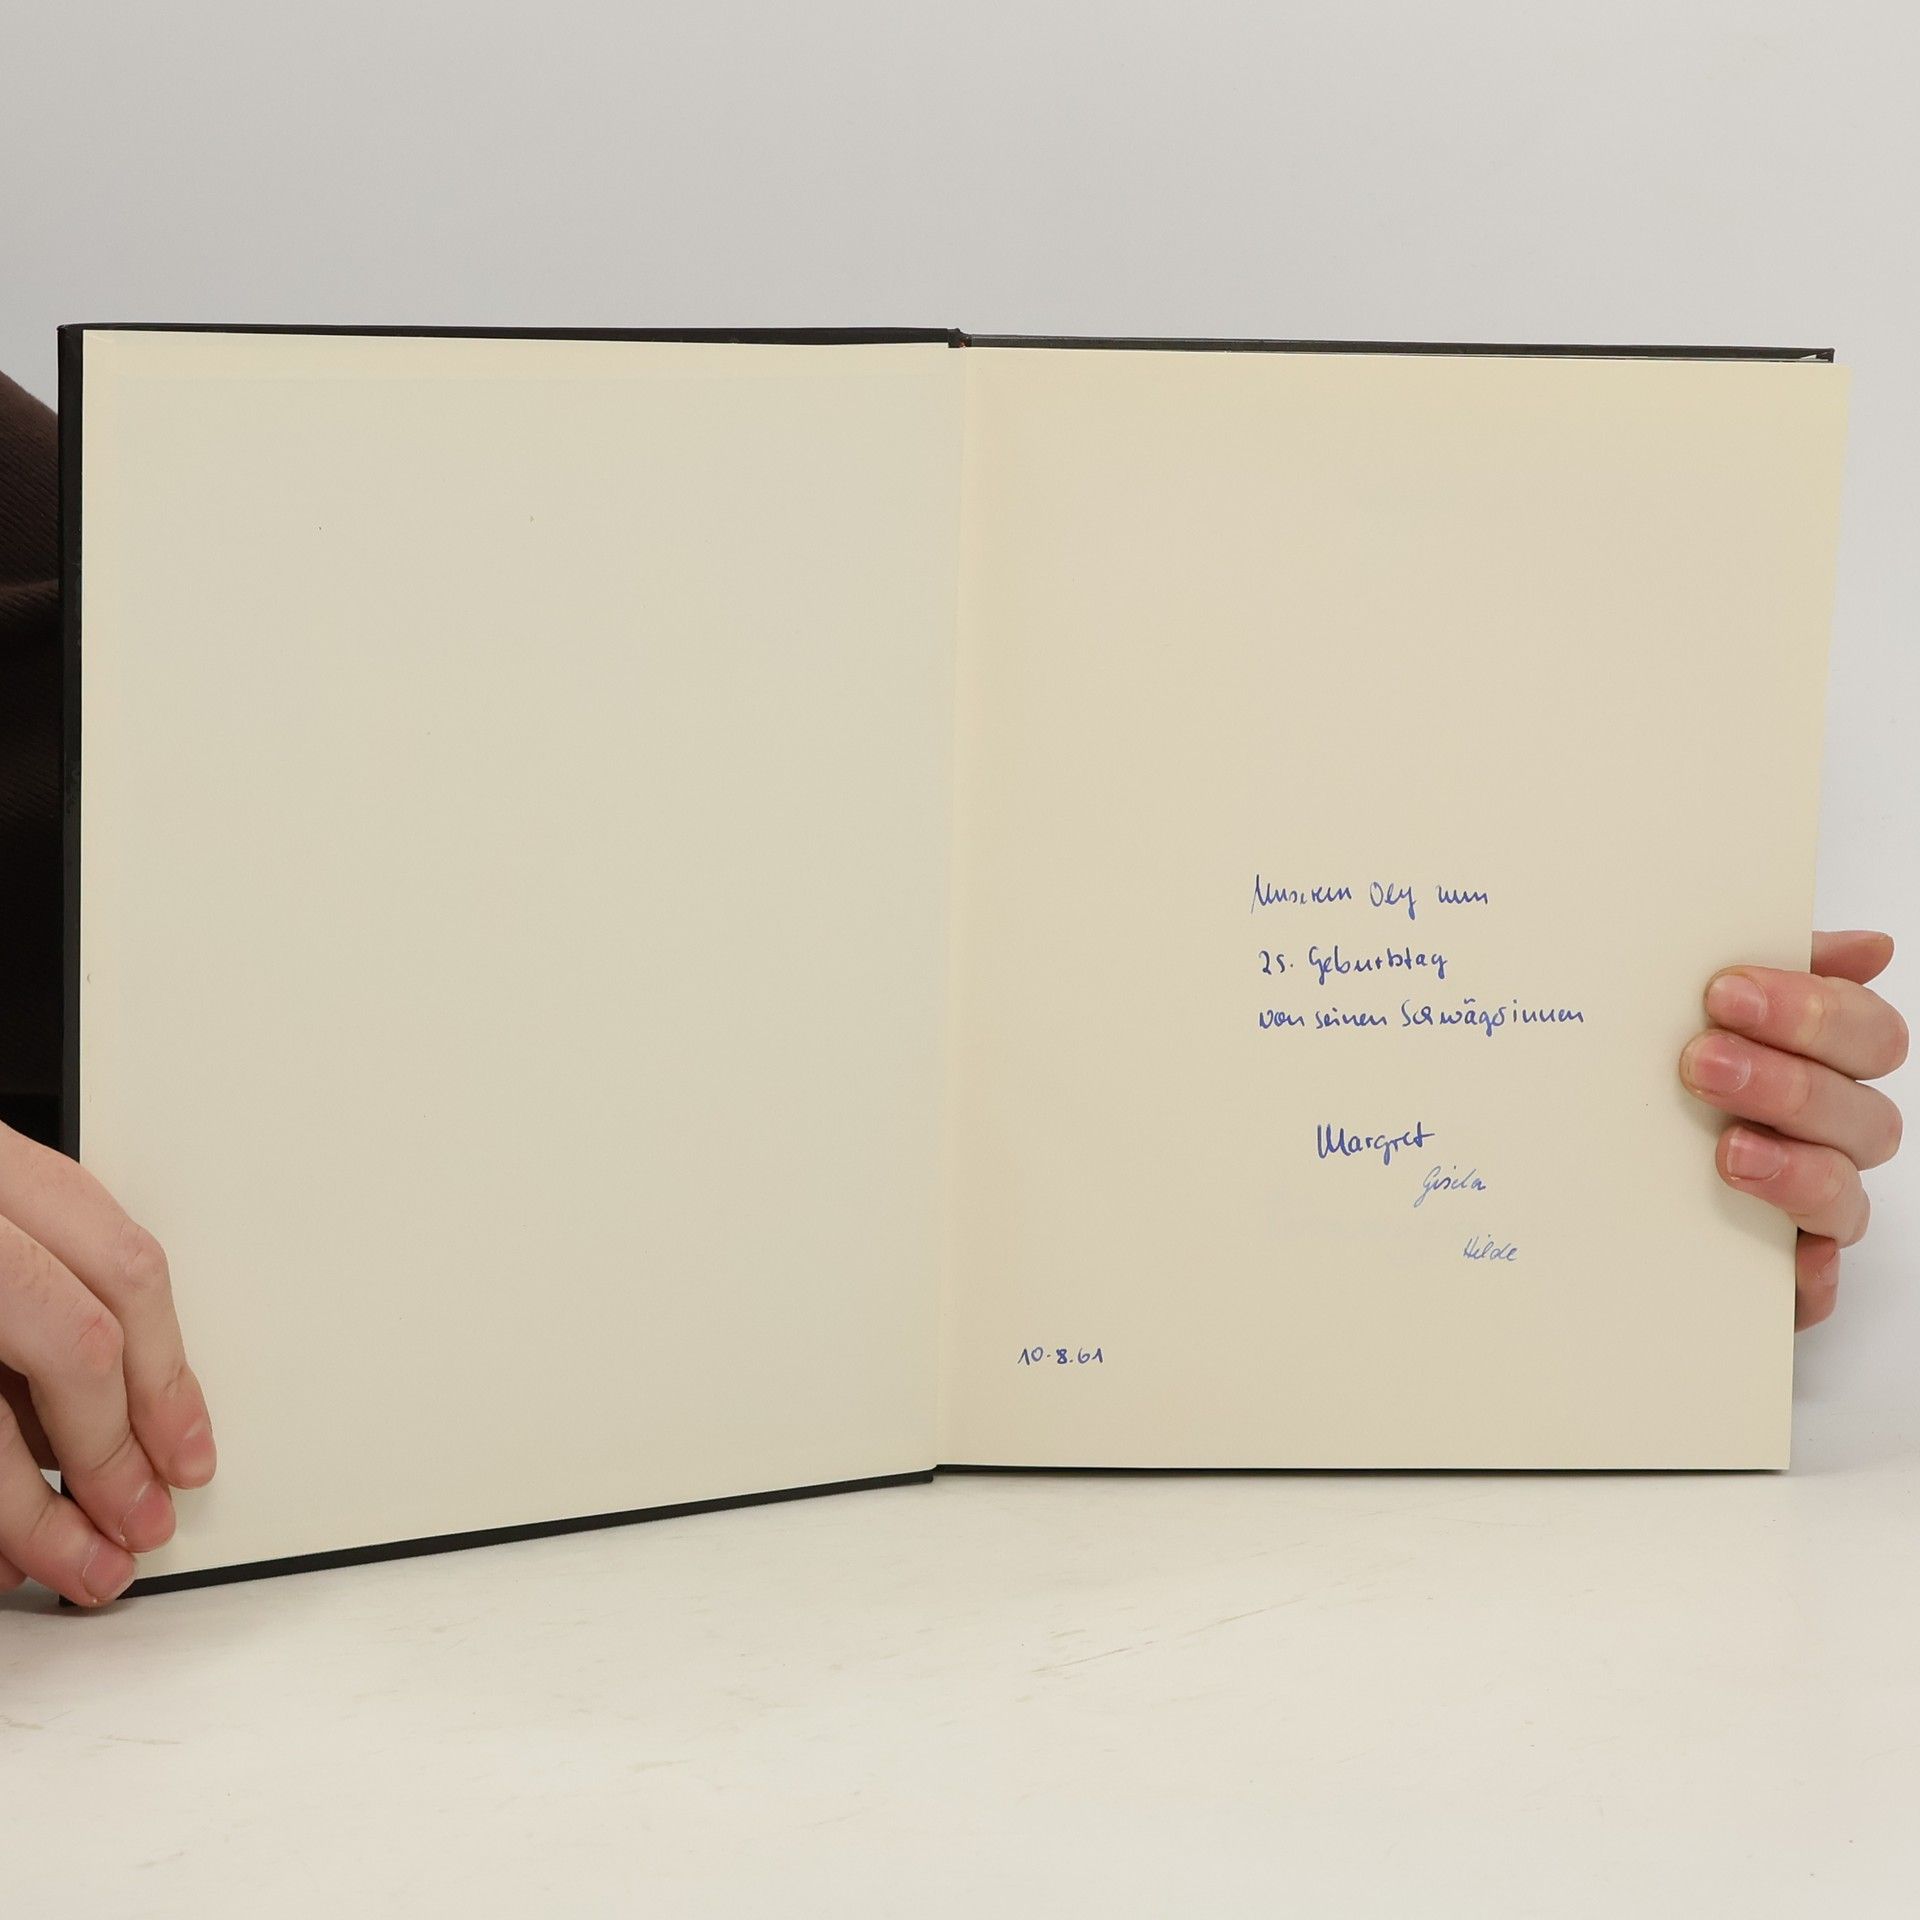 Unserem Oly zum
25. Geburtstag
von seinen Schwägerinnen
Margret
Gisela
Hilde
10.8.61